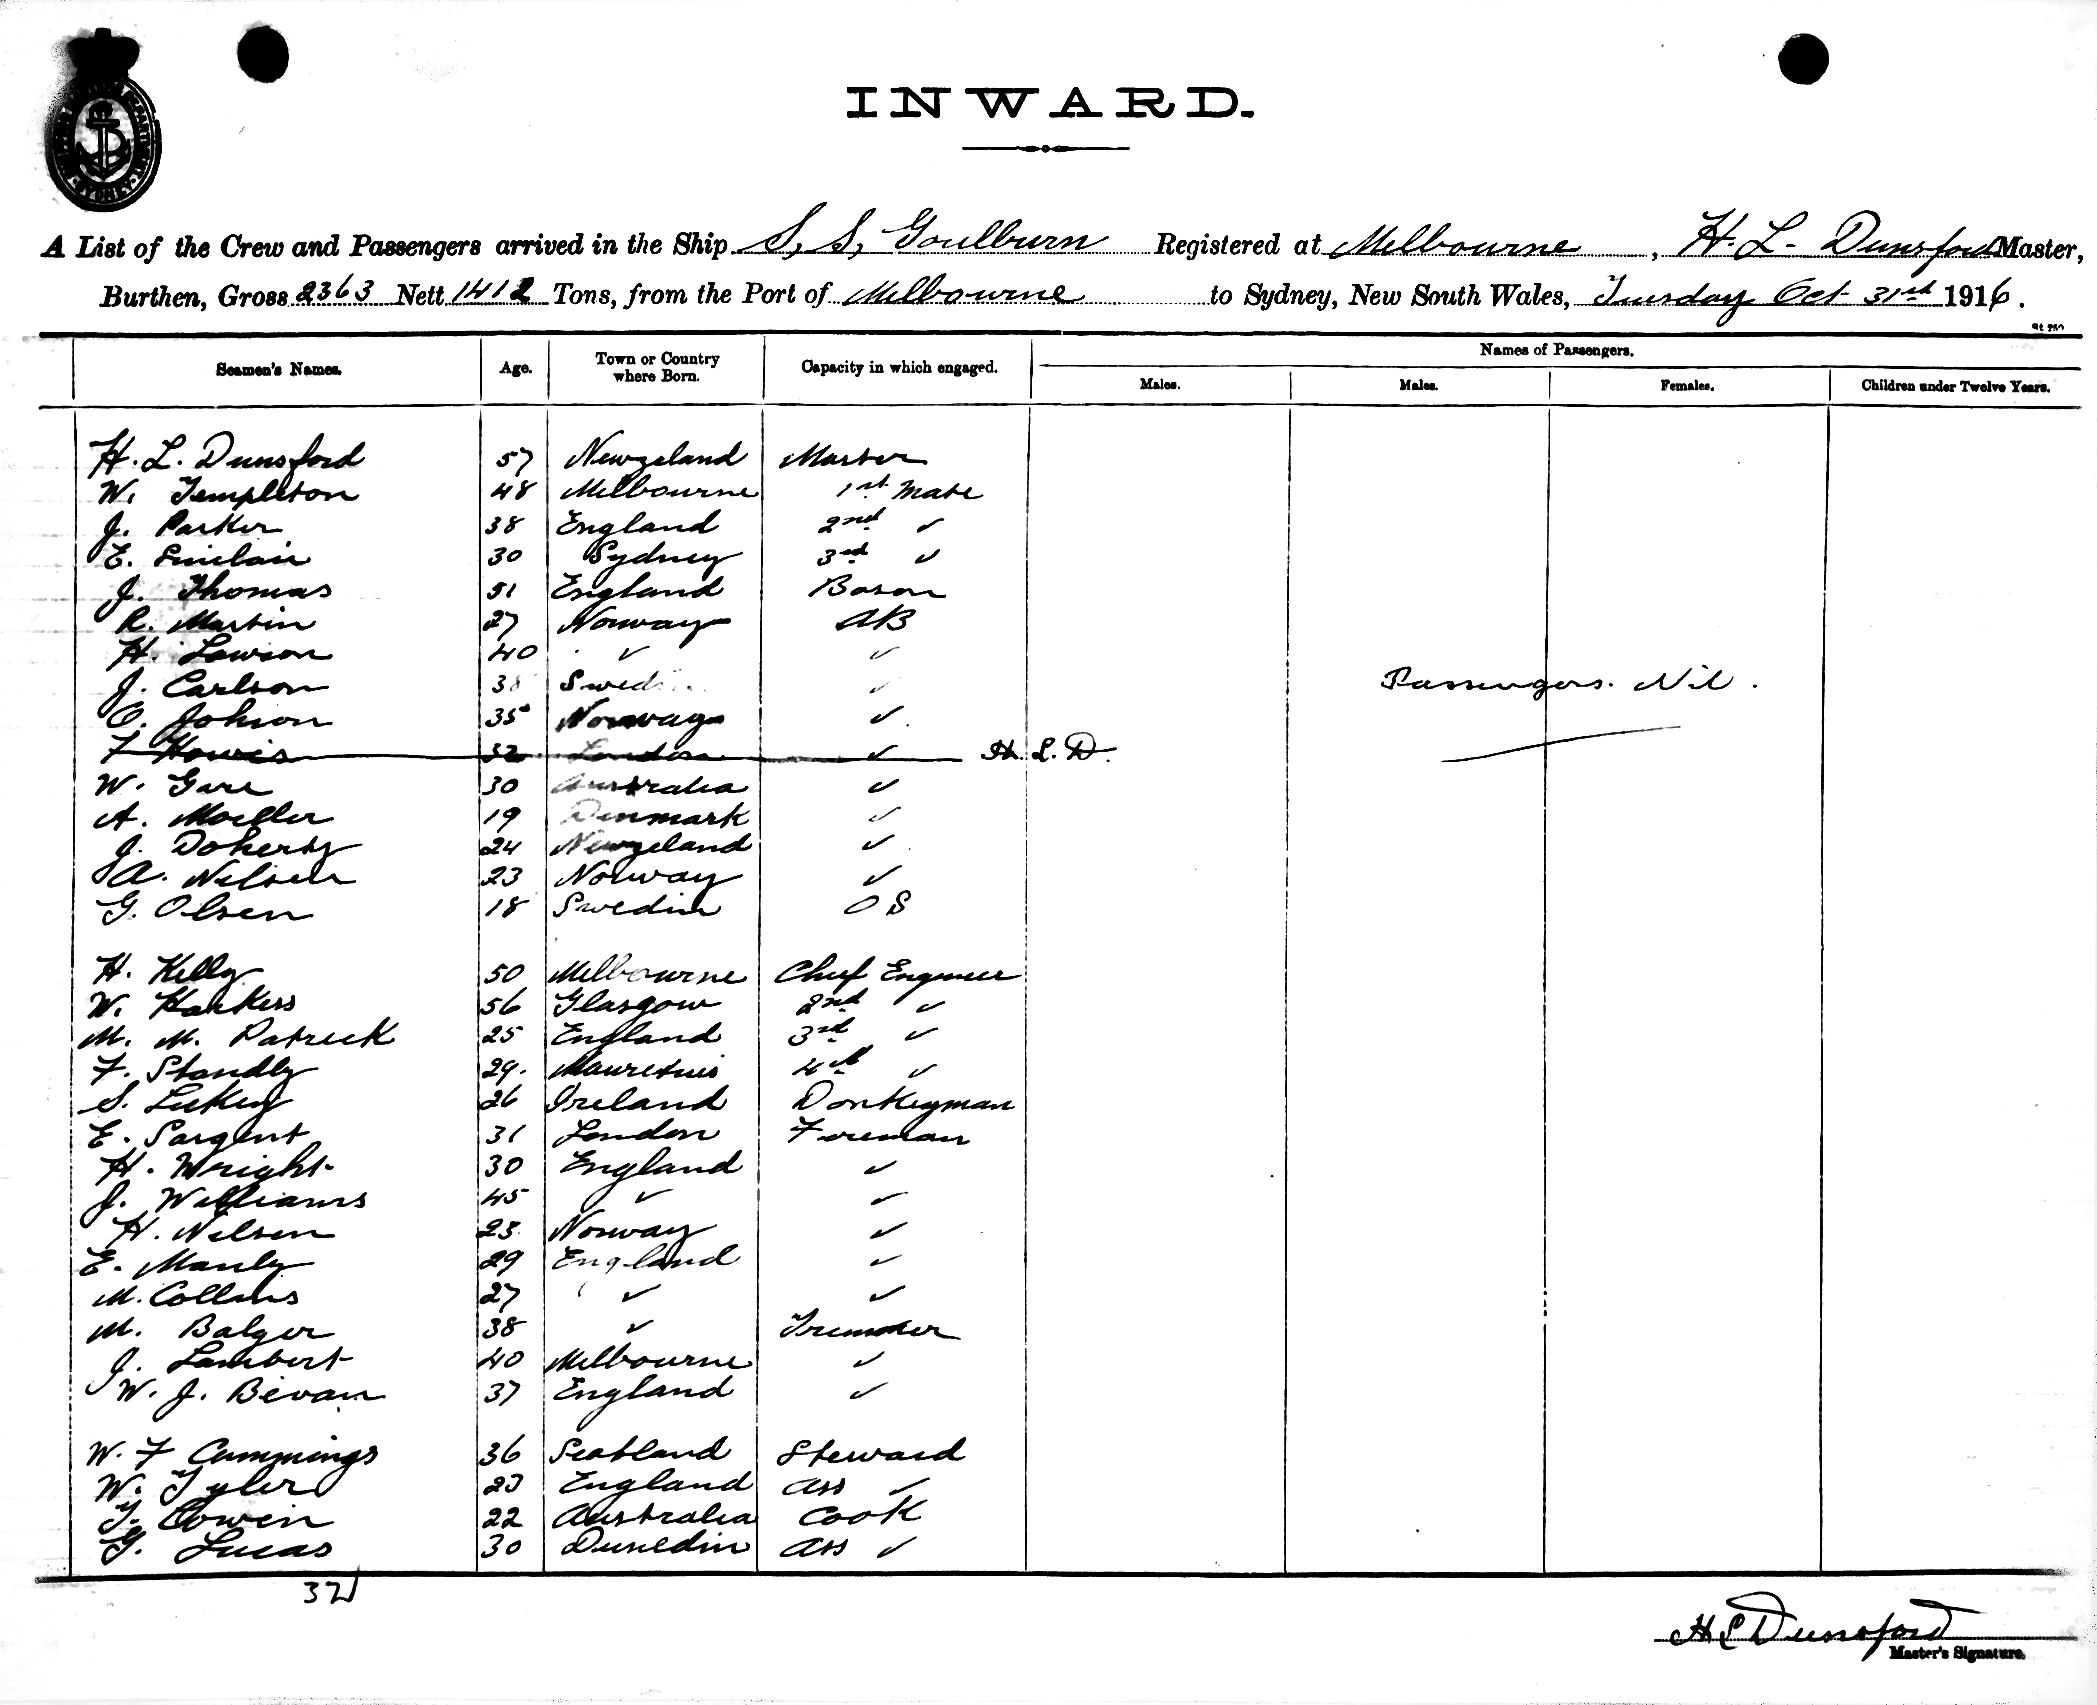 INWARD.
A List of the Crew and Passengers arrived in the Ship S. S. Goulburn Registered at Melbourne, H. L. Dunsford Master,
Burthen, Gross 2363 Nett 1412 Tons, from the Port of Melbourne to Sydney, New South Wales, Tuesday Oct 31st 1916.
Names of Passengers.
Seamen's Names. Age. Town or Country where Born. Capacity in which engaged. Males. Males. Females. Children under Twelve Years.
H. L. Dunsford 57 Newzeland Master
W. Templeton 48 Melbourne 1st Mate
J. Parker 38 England 2nd ✓
E. Sinclair 30 Sydney 3rd ✓
J. Thomas 51 England Boson
R. Martin 27 Norway AB
H. Lawson 40 ✓ ✓
J. Carlson 38 Swed ✓ Passengers. Nil.
O. Johson 35 Norway ✓
F Howis 32 London ✓ H. L. D.
W. Gare 30 Australia ✓
A. Moeller 19 Denmark ✓
J. Doherty 24 Newzeland ✓
A. Nilsen 23 Norway ✓
G. Olsen 18 Swedin OS
H. Kelly 50 Melbourne Chief Engineer
W. Harkess 56 Glasgow 2nd ✓
M. M. Patrick 25 England 3rd ✓
F. Standly 29. Mauretius 4th ✓
S. Lukey 26 Ireland Donkeyman
E. Sargent 31 London Fireman
H. Wright 30 England ✓
J. Williams 45 ✓ ✓
H. Nilsen 23 Norway ✓
E. Manly 29 England ✓
M. Collins 27 ✓ ✓
M. Balger 38 ✓ Trimmer
J. Lambert 40 Melbourne ✓
W. J. Bevan 37 England ✓
W. F Cummings 36 Scotland Steward
W. Tyler 23 England Ass ✓
T. Cowen 22 Australia Cook
G. Lucas 30 Dunedin Ass ✓
32
H L Dunsford
Master's Signature.